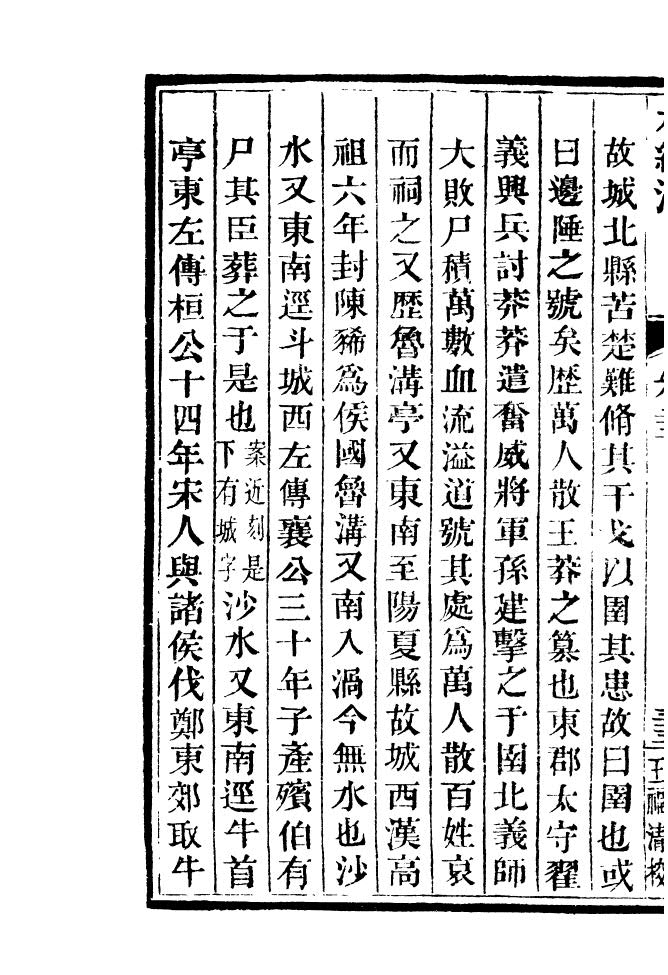 故城北縣苦楚難脩其干戈以圉其患故曰圉也或
曰邊陲之號矣歷萬人散王莽之篡也東郡太守翟
義興兵討莽莽遣奮威將軍孫建擊之于圉北義師
大敗尸積萬數血流溢道號其處爲萬人散百姓哀
而祠之又歷魯溝亭又東南至陽夏縣故城西漢高
祖六年封陳豨爲侯國魯溝又南入渦今無水也沙
水又東南逕斗城西左傳襄公三十年子產殯伯有
尸其臣葬之于是也案近刻是下有城字沙水又東南逕牛首
亭東左傳桓公十四年宋人與諸侯伐鄭東郊取牛